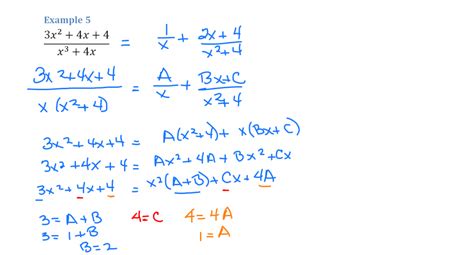 Example 5
(3x² + 4x + 4)/(x³ + 4x) = 1/x + (2x+4)/(x²+4)
(3x²+4x+4)/(x(x²+4)) = A/x + (Bx+C)/(x²+4)
3x²+4x+4 = A(x²+4) + x(Bx+C)
3x²+4x+4 = Ax²+4A+Bx²+Cx
3x²+4x+4 = x²(A+B)+Cx+4A
3=A+B 4=C 4=4A
3=1+B 1=A
B=2